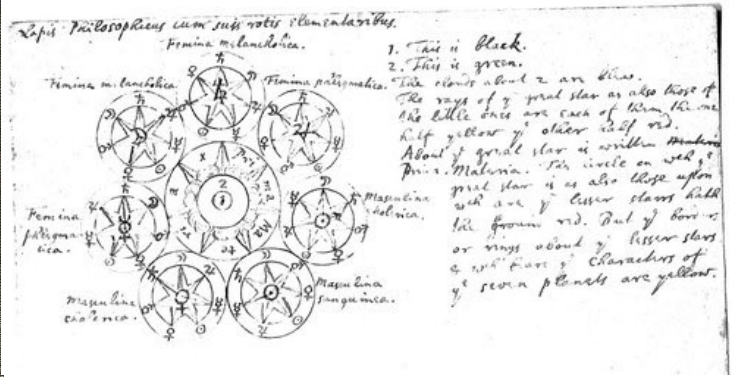 Lapis Philosophicus cum suis rotis elementaribus.
Femina melancholica.
Femina melancholica
Femina phlegmatica.
Femina
phlegma
tica.
Masculina
cholerica.
Masculina
cholerica.
Masculina
sanguinea.
1. This is black.
2. This is green.
The clouds about 2 are blew.
The rays of yᵉ great star as also those of
the little ones are each of them the one
half yellow yᵉ other half red.
About yᵉ great star is written
Prima Materia. The circle on wᶜʰ yᵉ
great star is as also those upon
wᶜʰ are yᵉ lesser starrs hath
the ground red. But yᵉ borders
or rings about yᵉ lesser stars
yᵉ characters of
yᵉ seven planets are yellow.